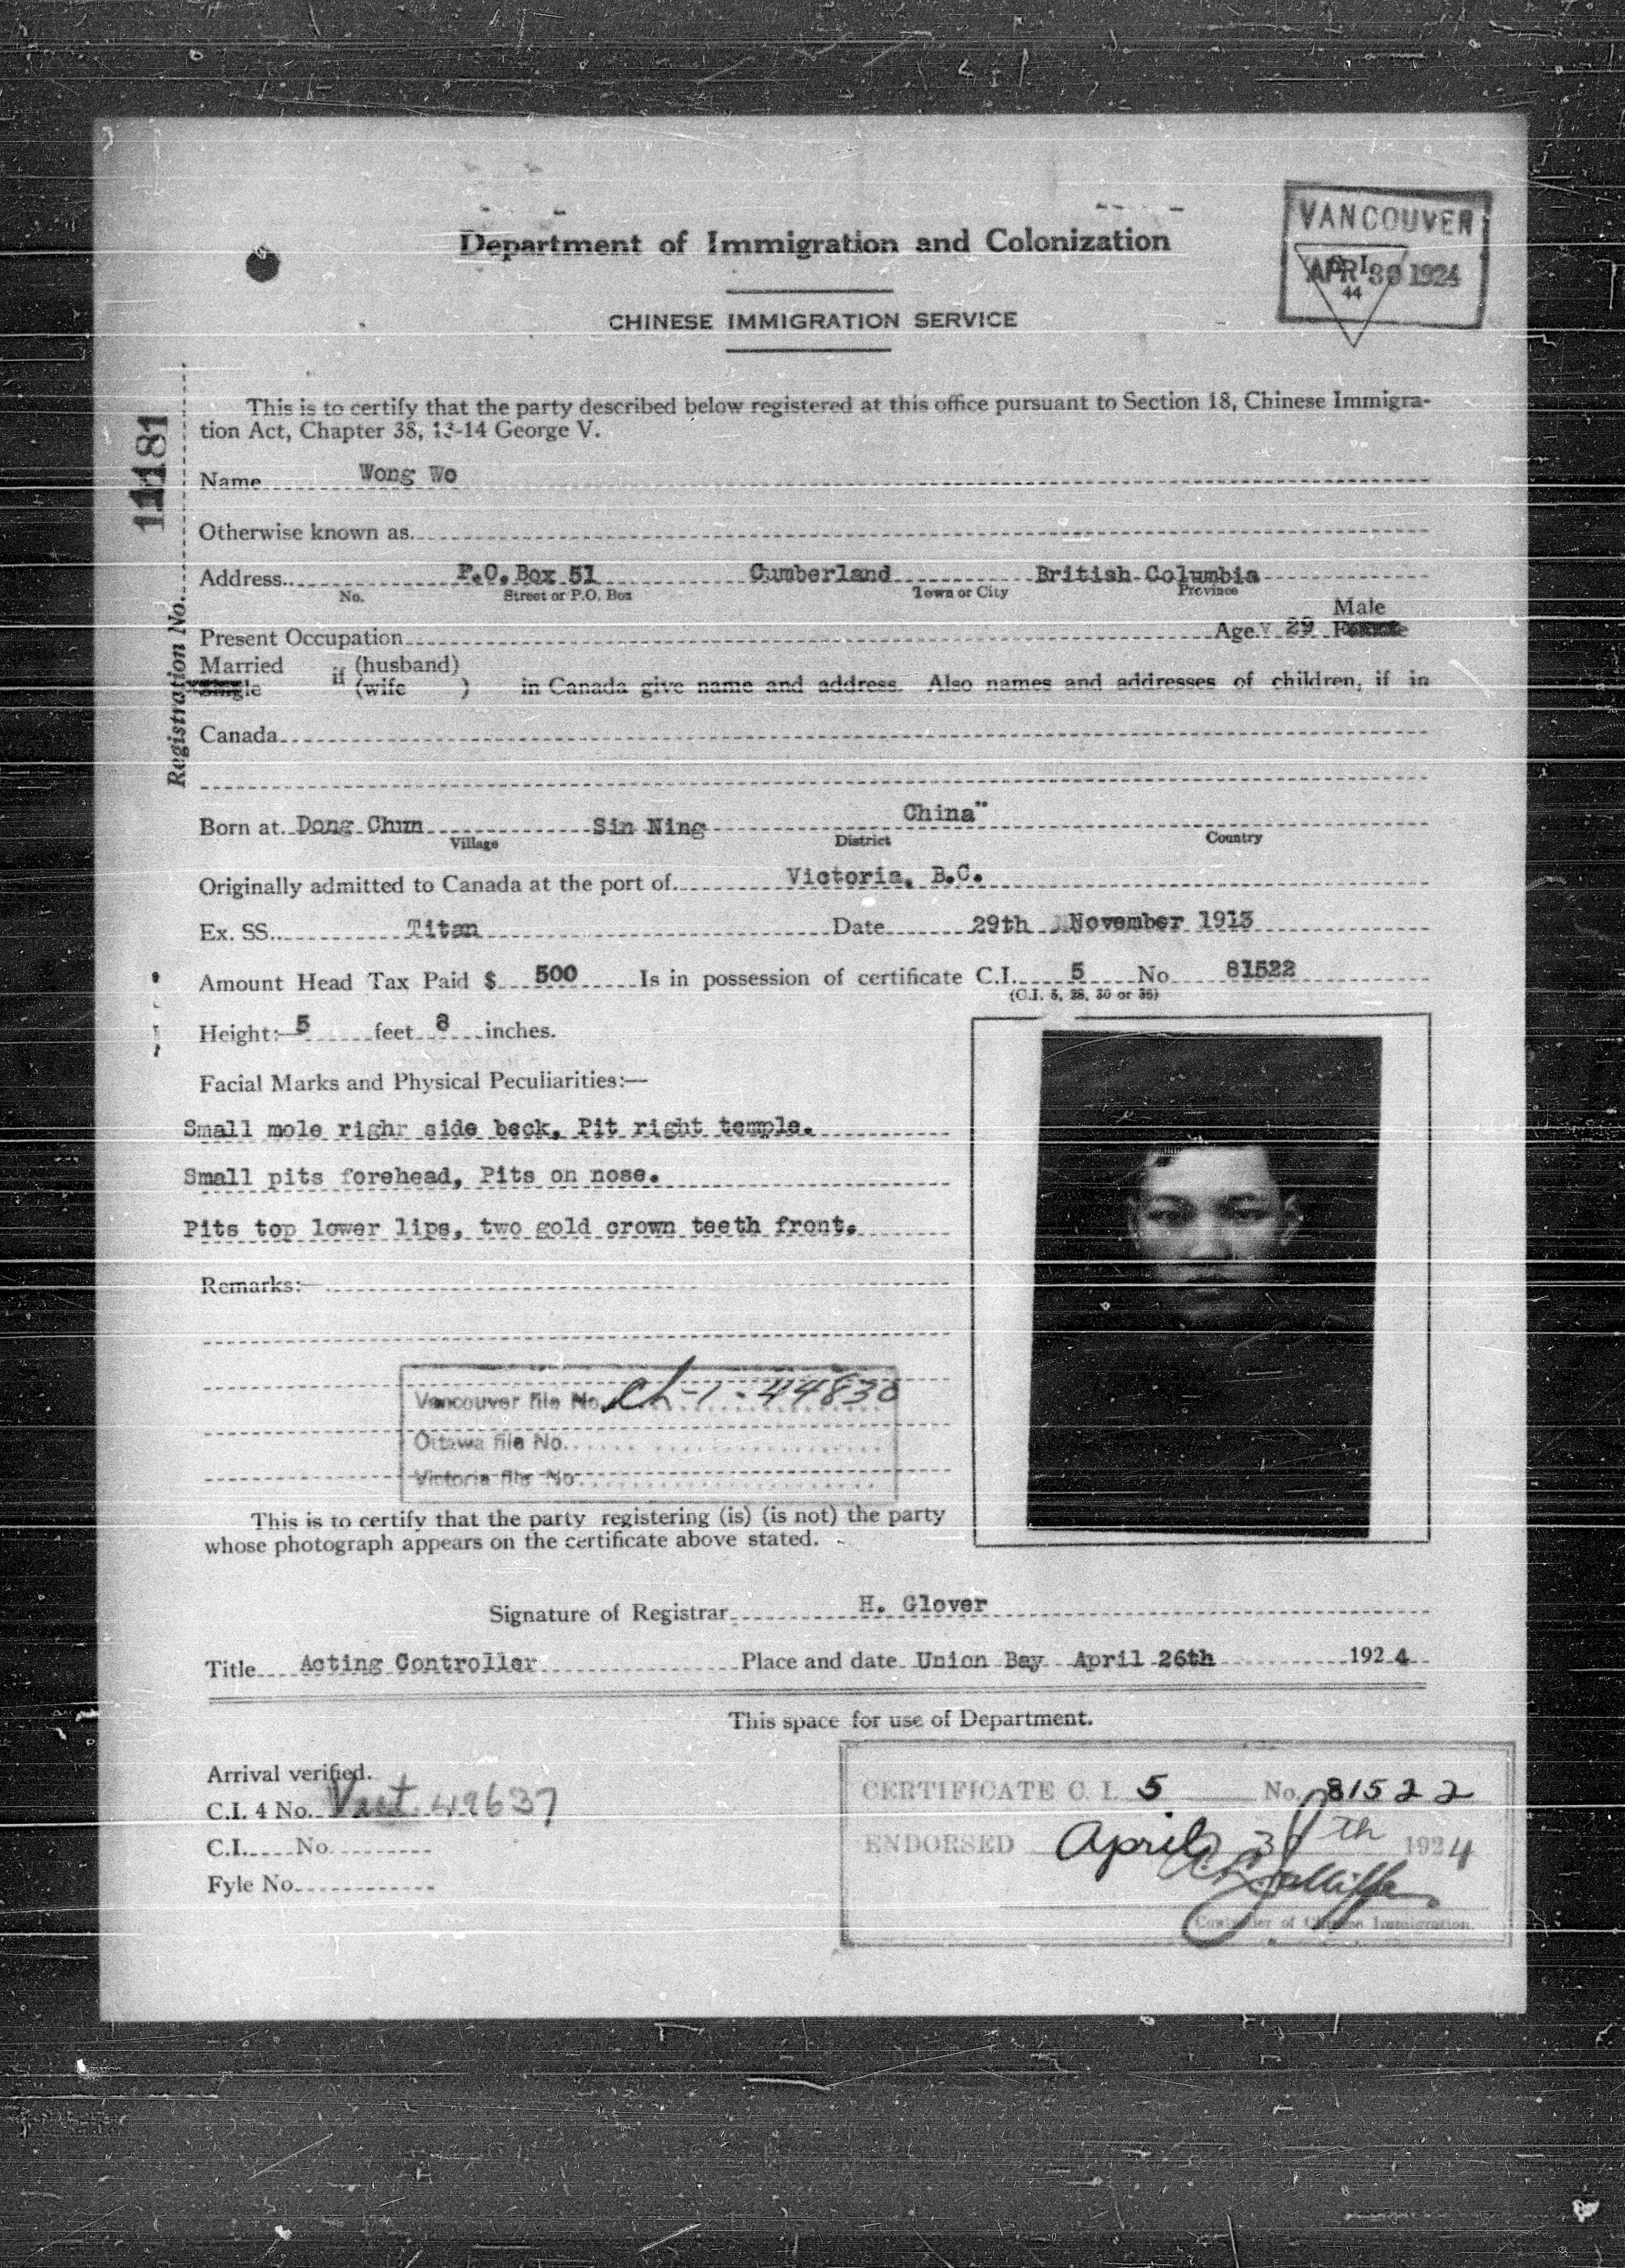 Department of Immigration and Colonization
VANCOUVER
APR 30 1924
C. I.
44
CHINESE IMMIGRATION SERVICE
This is to certify that the party described below registered at this office pursuant to Section 18, Chinese Immigra-
tion Act, Chapter 38, 13-14 George V.
Registration No. 11181
Name Wong Wo
Otherwise known as
Address P.O. Box 51 Cumberland British Columbia
No. Street or P.O. Box Town or City Province
Male
Present Occupation Age 29 Female
Married if (husband)
Single (wife ) in Canada give name and address. Also names and addresses of children, if in
Canada
Born at Dong Chun Sin Ning China"
Village District Country
Originally admitted to Canada at the port of Victoria, B.C.
Ex. SS. Titan Date 29th November 1913
Amount Head Tax Paid $ 500 Is in possession of certificate C.I. 5 No 81522
(C.I. 5, 28, 30 or 36)
Height:— 5 feet 8 inches.
Facial Marks and Physical Peculiarities:—
Small mole righr side beck, Pit right temple.
Small pits forehead, Pits on nose.
Pits top lower lips, two gold crown teeth front.
Remarks:—
Vancouver file No. Ch-1-44830
Ottawa file No.
Victoria file No.
This is to certify that the party registering (is) (is not) the party
whose photograph appears on the certificate above stated.
Signature of Registrar H. Glover
Title Acting Controller Place and date Union Bay April 26th 1924
This space for use of Department.
Arrival verified.
C.I. 4 No. 49637
C.I. No.
Fyle No.
CERTIFICATE C. I. 5 No. 81522
ENDORSED April 30th 1924
Controller of Chinese Immigration.